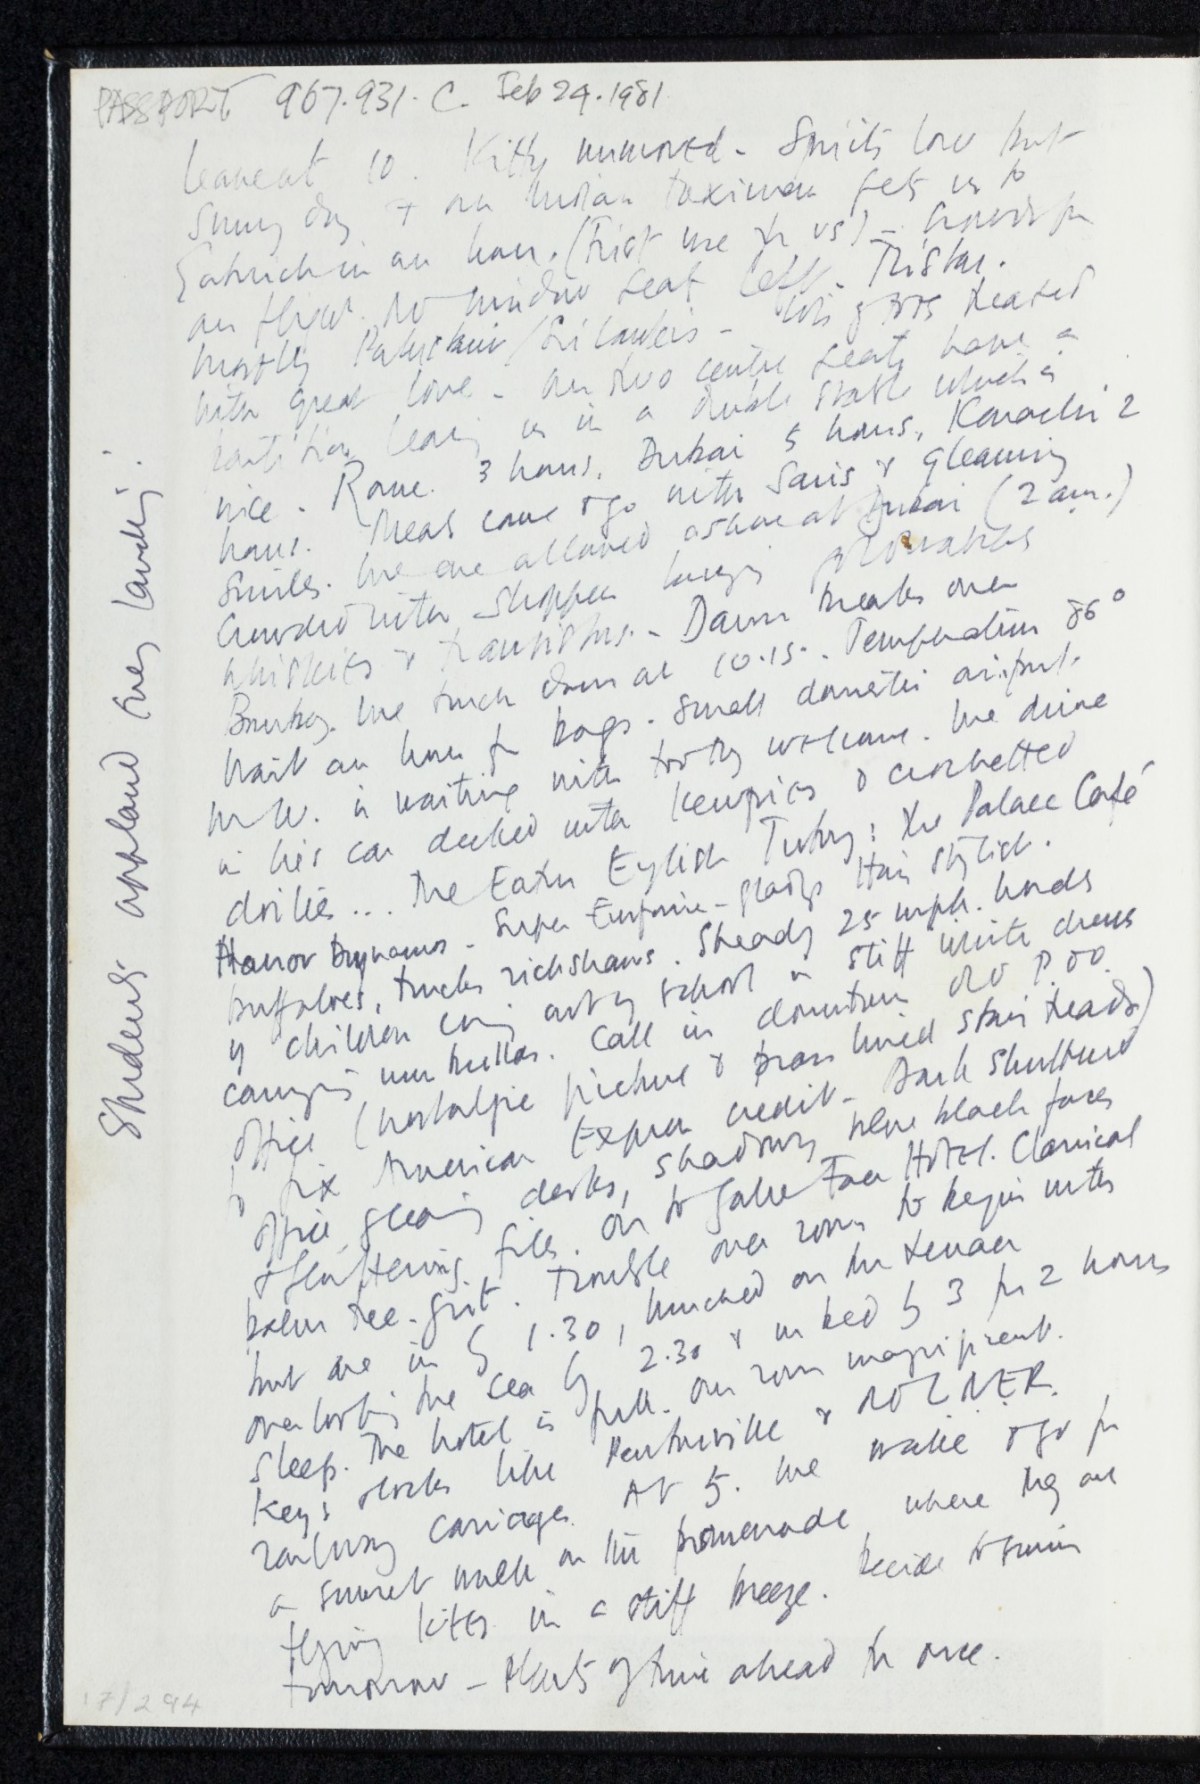 PASSPORT 967.931. C. Feb 24. 1981
leave at 10. Kitty unmoved - Spirits low but
sunny day + our Indian taximan gets us to
Gatwick in an hour. (First one for us) - crowds for
our flight. No window seat left. TriStar.
Mostly Pakistani / Sri Lankans - lots of TOTS treated
with great love - Our two centre seats have a
partition leaving us in a double stable which is
nice. Rome 3 hours, Dubai 5 hours, Karachi 2
hours. Meals come & go with Saris & gleaming
smiles. We are allowed ashore at Dubai (2 am.)
Crowded with shoppers buying
whiskies & transistors. - Dawn breaks over
Bombay. We touch down at 10.15. Temperature 86°
Wait an hour for bags. Small domestic airport.
Mr W. is waiting with toothy welcome. We drive
in his car decked with kewpies & crochetted
doilies ... The Eater English Turkey: The Palace Café
Honor Dynamos - Super Enfonic - Gladys Hair Stylist.
buffaloes, trucks rickshaws. Steady 25 mph. hordes
of children coming out of school in stiff white dresses
carrying umbrellas. Call in downtown old P.OO.
office (nostalgic picture & brass lined stair treads)
to fix American Express credit - Dark shuttered
office gleaming desks, shadowy blue black faces
& fluttering files. On to Galle Face Hotel. Classical
palm tree-girt. Trouble over room to begin with
but are in by 1.30, lunched on the terrace
overlooking the sea by 2.30 & in bed by 3 for 2 hours
sleep. The hotel is full. Our room magnificent.
Keys & locks like Pentonville &
railway carriages. At 5. we wake & go for
a sunset walk on the promenade where they are
flying kites in a stiff breeze. Decide to swim
tomorrow - Plenty of time ahead for once.
Students applaud every landing!
17/294